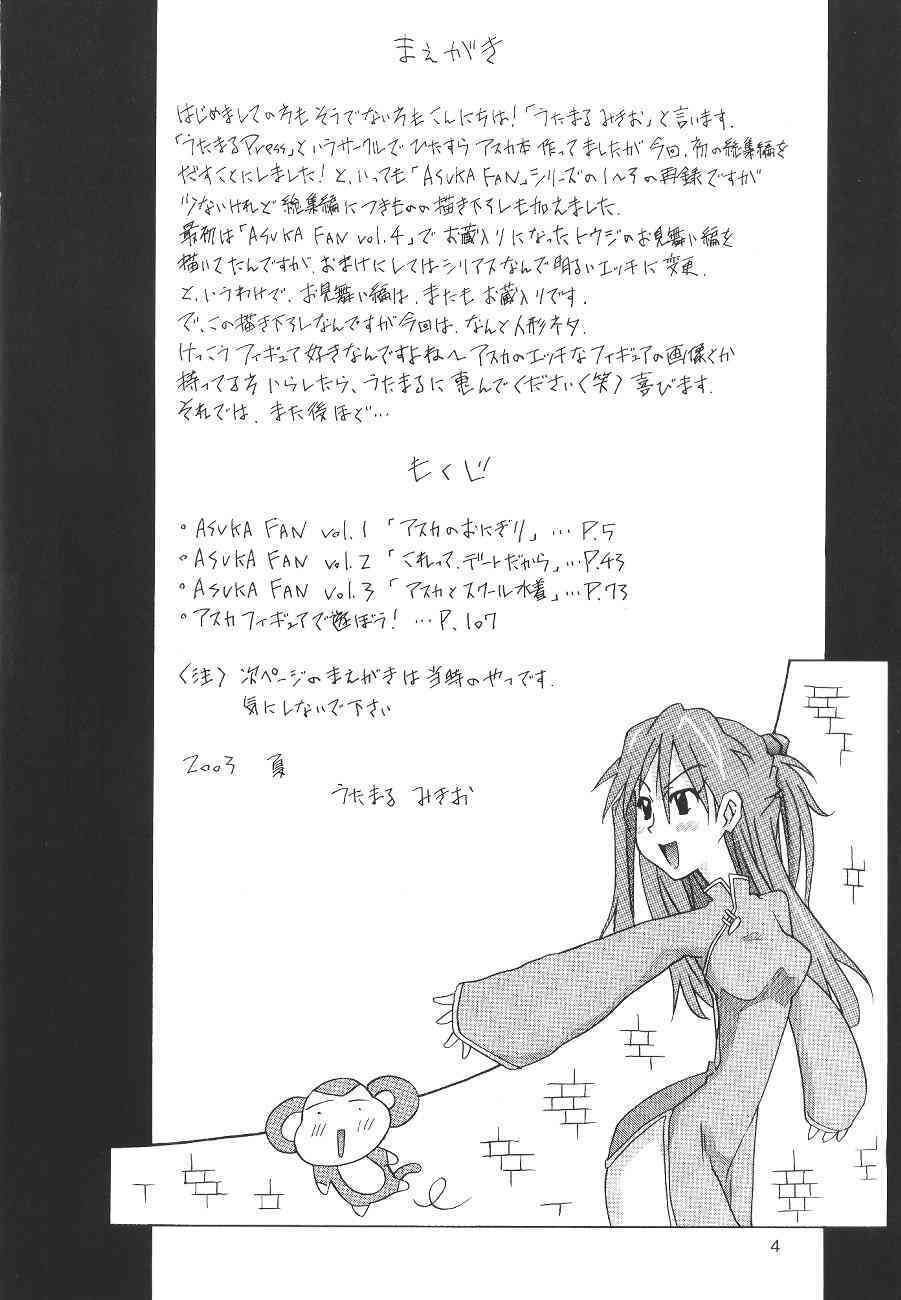 まえがき
はじめましての方もそうでない方もこんにちは!「うたまる みきお」と言います.
「うたまるPress」というサークルでひたすら アスカ本 作ってましたが今回、初の総集編を
だすことにしました!と、いっても「ASUKA FAN」シリーズの1〜3の再録ですが
少ないけれど総集編につきものの描き下ろしも加えました.
最初は「ASUKA FAN vol.4」でお蔵入りになったトウジのお見舞い編を
描いてたんですが、おまけにしてはシリアスなんで明るいエッチに変更.
と、いうわけで、お見舞い編は、またもお蔵入りです.
で、この描き下ろしなんですが今回は、なんと人形ネタ.
けっこうフィギュア好きなんですよね〜 アスカのエッチなフィギュアの画像とか
持ってる方いらしたら、うたまるに恵んでください(笑)喜びます.
それでは、また後ほど…
もくじ
・ASUKA FAN vol.1「アスカのおにぎり」…P.5
・ASUKA FAN vol.2「これって、デートだから」…P.43
・ASUKA FAN vol.3「アスカとスクール水着」…P.73
・アスカフィギュアで遊ぼう! …P.107
〈注〉次ページのまえがきは当時のやつです.
気にしないで下さい
2003 夏
うたまる みきお
4